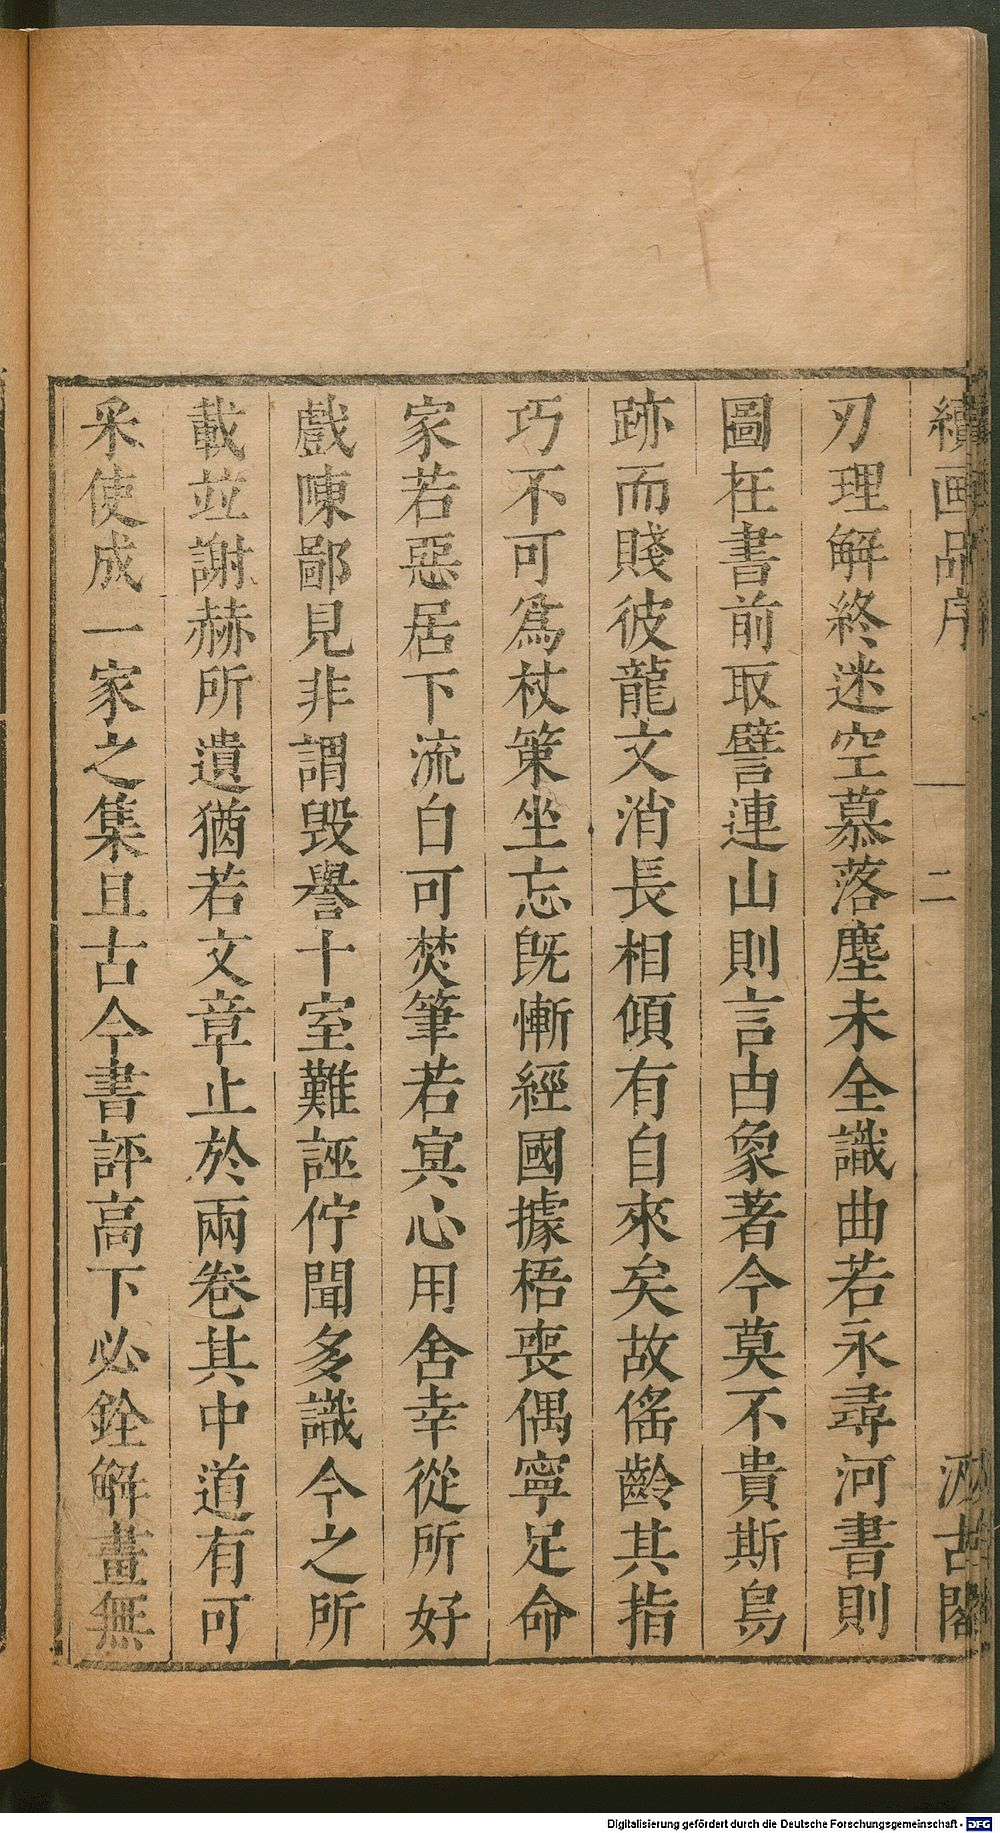 續画品序
二
汲古閣
刃理解終迷空慕落塵未全識曲若永尋河書則
圖在書前取譬連山則言由象著今莫不貴斯鳥
跡而賤彼龍文消長相傾有自來矣故傜齡其指
巧不可爲杖策坐忘旣慚經國據梧喪偶寧足命
家若惡居下流自可焚筆若冥心用舍幸從所好
戲陳鄙見非謂毀譽十室難誣佇聞多識今之所
載並謝赫所遺猶若文章止於兩卷其中道有可
采使成一家之集且古今書評高下必銓解畫無
Digitalisierung gefördert durch die Deutsche Forschungsgemeinschaft - DFG